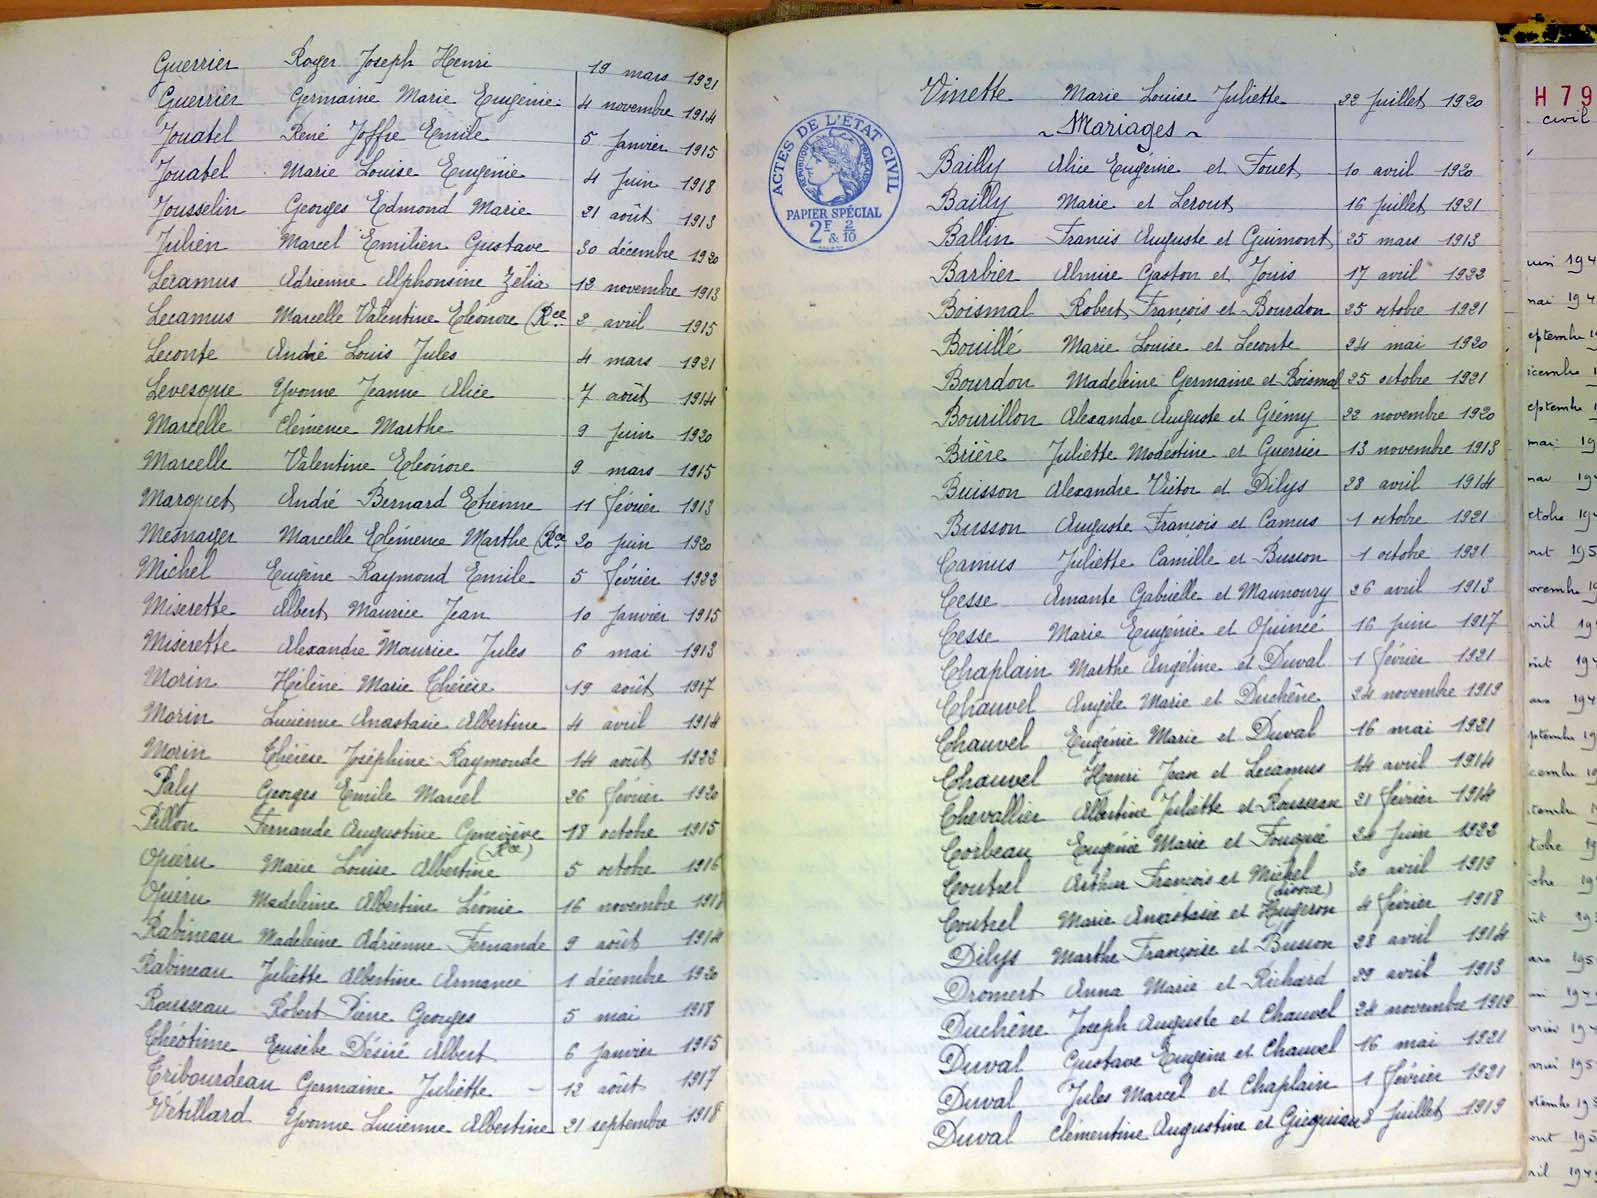 Guerrier Roger Joseph Henri 19 mars 1921
Guerrier Germaine Marie Eugénie 4 novembre 1914
Jouatel René Joffre Emile 5 Janvier 1915
Jouatel Marie Louise Eugénie 4 Juin 1918
Jousselin Georges Edmond Marie 21 août 1913
Julien Marcel Emilien Gustave 30 décembre 1920
Lecamus Adrienne Alphonsine Zélia 12 novembre 1913
Lecamus Marcelle Valentine Eléonore (Rce 2 avril 1915
Leconte André Louis Jules 4 mars 1921
Levesque Yvonne Jeanne Alice 7 août 1914
Marcelle Clémence Marthe 9 Juin 1920
Marcelle Valentine Eléonore 9 mars 1915
Marquet André Bernard Etienne 11 février 1913
Mesnager Marcelle Clémence Marthe (Rce 20 Juin 1920
Michel Eugène Raymond Emile 5 février 1922
Miserette Albert Maurice Jean 10 Janvier 1915
Miserette Alexandre Maurice Jules 6 mai 1913
Morin Hélène Marie Thérèse 19 août 1917
Morin Lucienne Anastasie Albertine 4 avril 1914
Morin Thérèse Joséphine Raymonde 14 août 1922
Paly Georges Emile Marcel 26 février 1920
Pillon Fernande Augustine Geneviève 18 octobre 1915
(Rce)
Quéru Marie Louise Albertine 5 octobre 1916
Quéru Madeleine Albertine Léonie 16 novembre 1918
Rabineau Madeleine Adrienne Fernande 9 août 1914
Rabineau Juliette Albertine Armance 1 décembre 1920
Rousseau Robert Pierre Georges 5 mai 1918
Théotime Eusèbe Désiré Albert 6 Janvier 1915
Tribourdeau Germaine Juliette - 12 août 1917
Vétillard Yvonne Lucienne Albertine 21 septembre 1918
Vinette Marie Louise Juliette 22 Juillet 1920
~ Mariages ~
ACTES DE L'ÉTAT CIVIL
RÉPUBLIQUE FRANÇAISE
PAPIER SPÉCIAL
2F & 2/10
Bailly Alice Eugénie et Fouet 10 avril 1920
Bailly Marie et Leroux 16 Juillet 1921
Ballin Francis Auguste et Guimont 25 mars 1913
Barbier Almire Gaston et Jouis 17 avril 1922
Boismal Robert François et Bourdon 25 octobre 1921
Bouillé Marie Louise et Leconte 24 mai 1920
Bourdon Madeleine Germaine et Boismal 25 octobre 1921
Bourillon Alexandre Auguste et Grémy 22 novembre 1920
Brière Juliette Modestine et Guerrier 13 novembre 1913
Buisson Alexandre Victor et Dilys 28 avril 1914
Busson Auguste François et Camus 1 octobre 1921
Camus Juliette Camille et Busson 1 octobre 1921
Cesse Amante Gabrielle et Maunoury 26 avril 1913
Cesse Marie Eugénie et Quincé 16 Juin 1917
Chaplain Marthe Angéline et Duval 1 février 1921
Chauvel Angèle Marie et Duchêne 24 novembre 1919
Chauvel Eugénie Marie et Duval 16 mai 1921
Chauvel Henri Jean et Lecamus 14 avril 1914
Chevallier Albertine Juliette et Rousseau 21 février 1914
Corbeau Eugénie Marie et Fouqué 24 Juin 1922
Coutrel Arthur François et Michel 30 avril 1919
(divorce)
Coutrel Marie Anastasie et Hugeron 4 février 1918
Dilys Marthe Françoise et Busson 28 avril 1914
Dromert Anna Marie et Richard 29 avril 1913
Duchêne Joseph Auguste et Chauvel 24 novembre 1919
Duval Gustave Eugène et Chauvel 16 mai 1921
Duval Jules Marcel et Chaplain 1 février 1921
Duval Clémentine Augustine et 8 Juillet 1919
H 79
civil